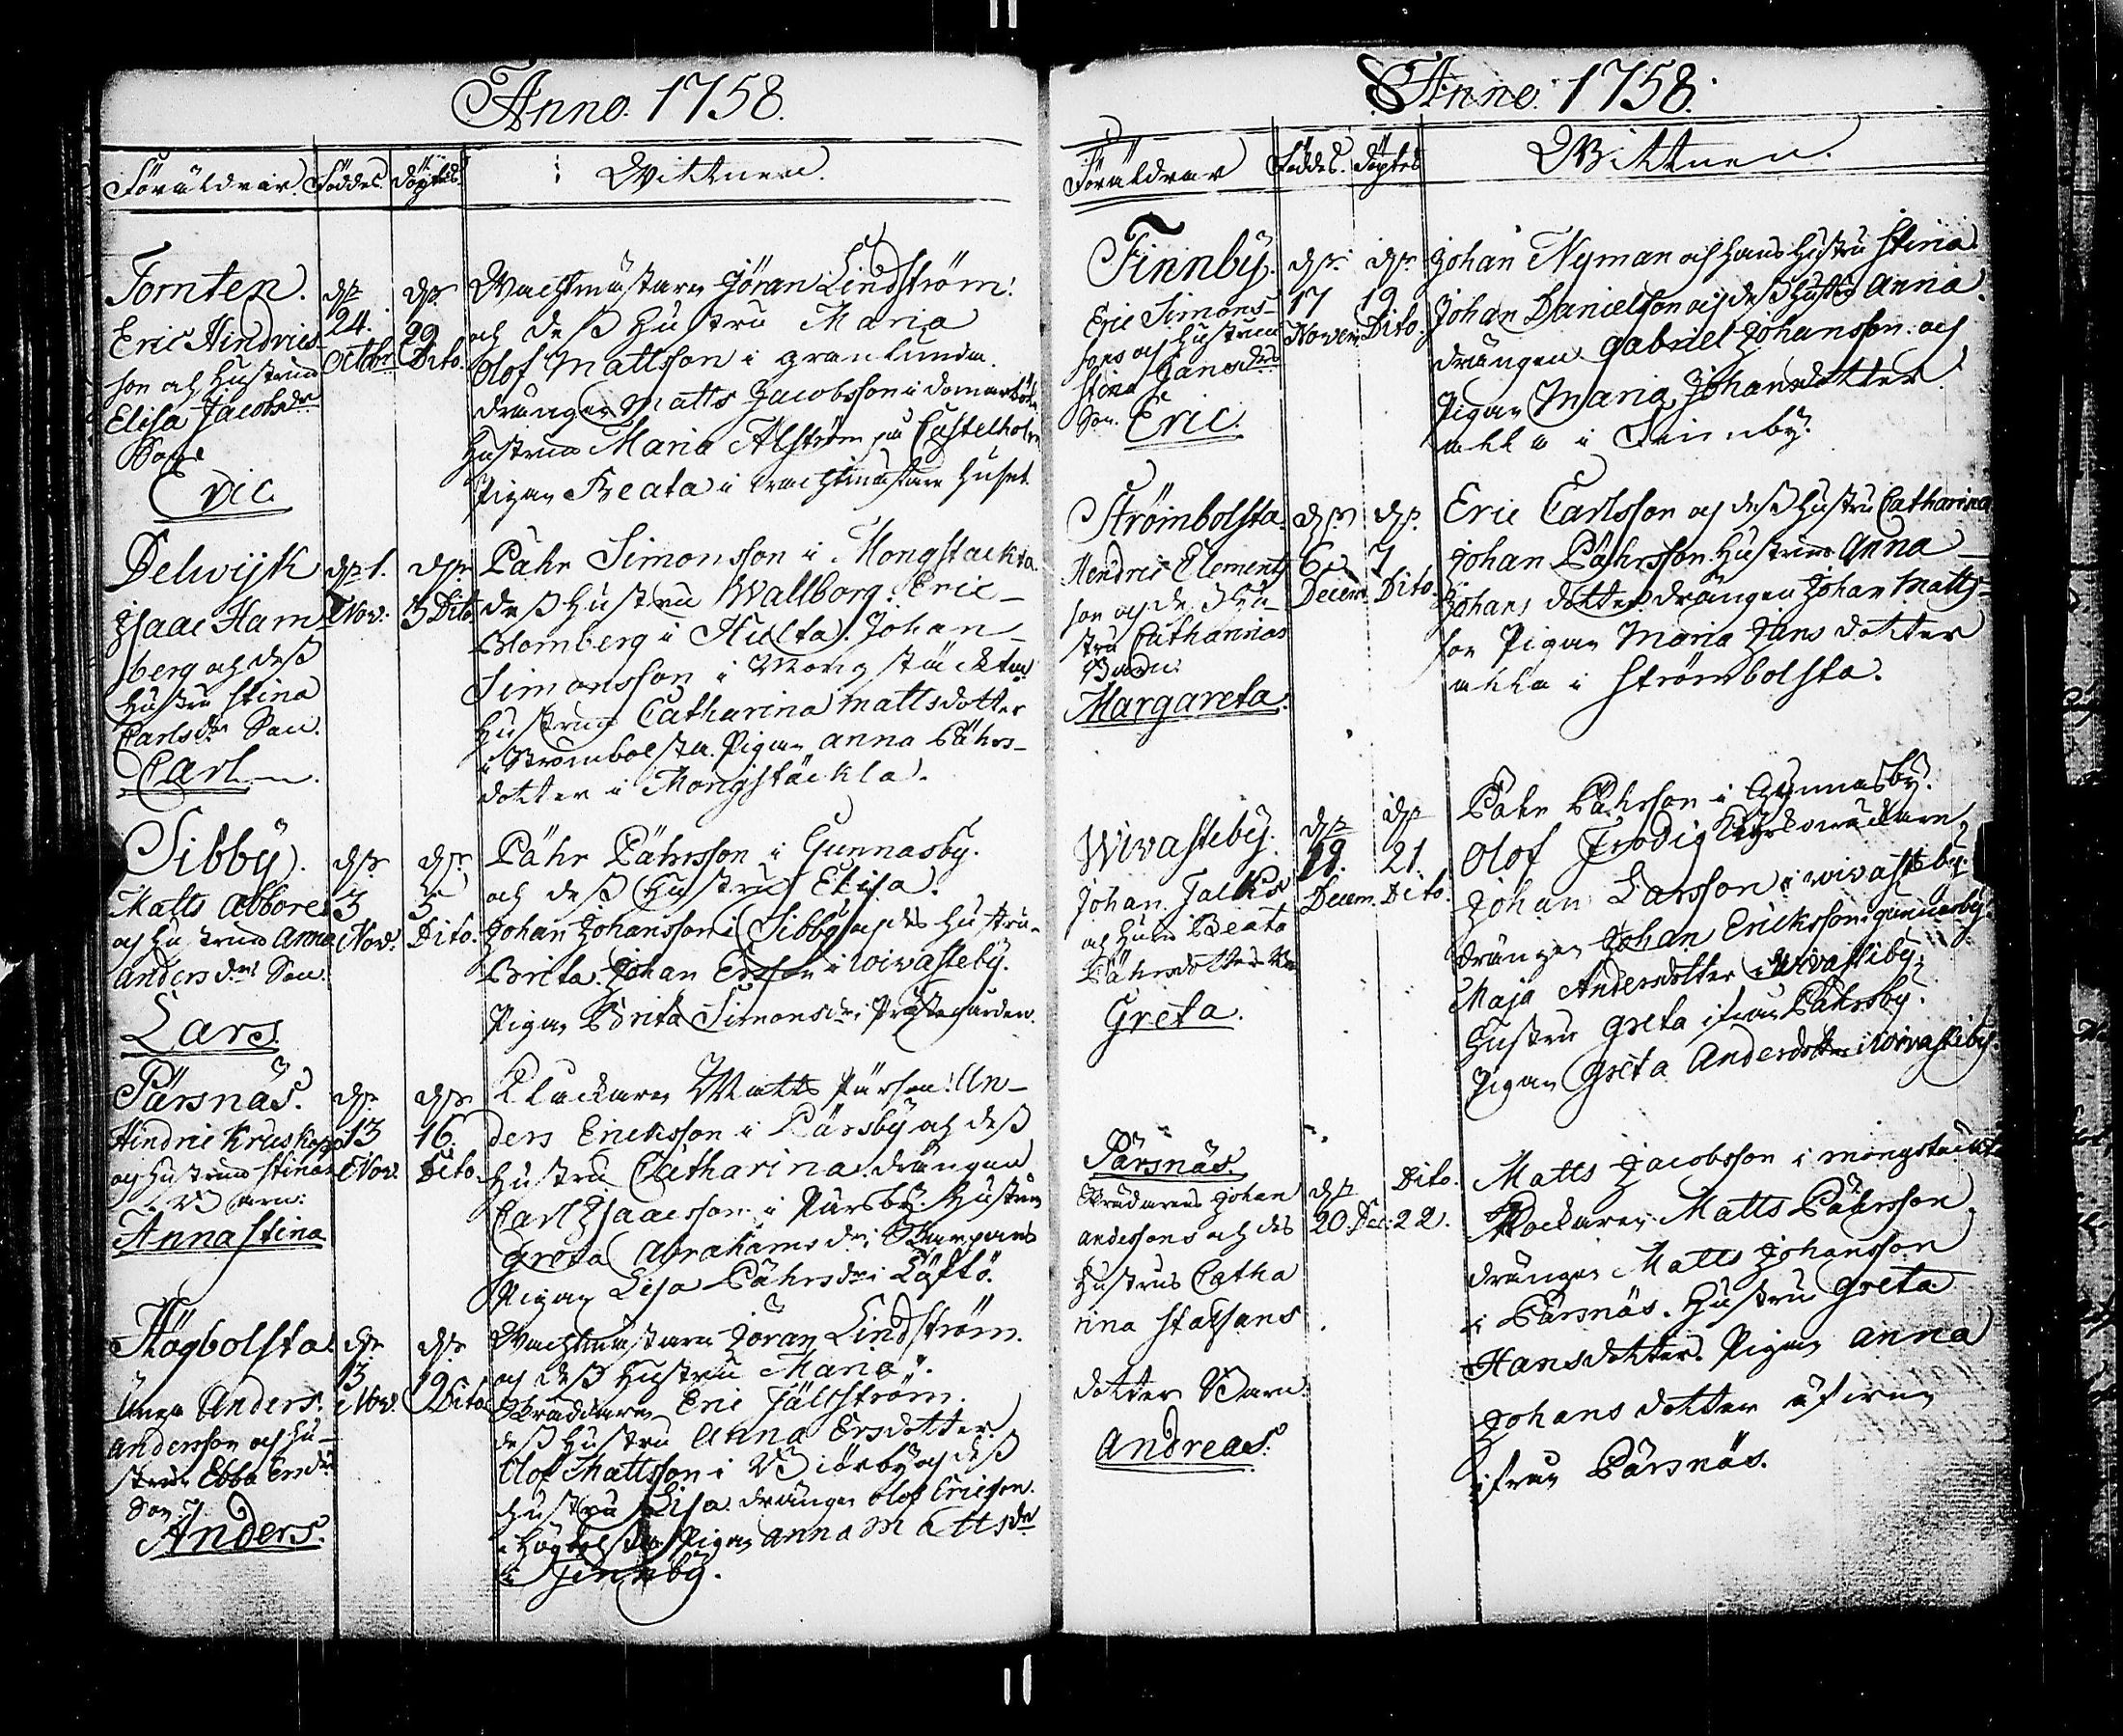 Anno. 1758.
Föräldrar. Föddes. Döptes. Wittnen.
Tomten.
Eric Hindrics
son och Hustrun
Elisa Jacobs dr
Son
Eric.
dn
24.
Octobr
dn
29
Dito.
Wachtmästaren Jöran Lindström
och dess hustru Maria
Olof Mattsson i Granlunda
drängen Matts Jacobsson i Domarböle
Hustrun Maria Alström på Castelholm
Pigan Beata i Wachtmästare huset
Delwijk
Isaac Ham
berg och dess
hustru Stina
Carls dr Son.
Carl
dn 1.
Nov.
dn
5 Dito
Pähr Simonsson i Mongstäckta
dess hustru Wallborg. Eric
Blomberg i Hulta. Johan
Simonsson i Mongstäckta
hustrun Catharina Mattsdotter
i Strömbolsta. Pigan Anna Pährs-
dotter i Mongstäckla.
Sibby.
Matts Abbores
och hustrun Anna
Anders dr Son.
Lars.
dn
3
Nov.
dn
5
Dito.
Pähr Pährsson i Gunnasby.
och dess hustru Elisa.
Johan Johansson i Sibby och des hustru
Brita. Johan Ersson i Wivasteby.
Pigan Brita Simons dr i Prästegården.
Pärsnäs.
Hindric Kruskopp
och hustrun Stinas
Barn:
Anna Stina
dn
13
Nov.
dn
16.
Dito.
Klockaren Matts Pärson. An-
ders Ericksson i Pärsby och dess
hustru Catharina. drängen
Carl Isaacsson i Pärsby. Hustrun
Greta Abrahams dr i
Pigan Lisa Pährs dr i Löftö.
Högbolsta
Anders
Andersson och hu-
strun Ebba Ers dr
Son
Anders.
dn
13
Nov.
dn
19
Dito
Wachtmästaren Jöran Lindström.
och dess hustru Maria.
Skräddaren Eric Fältström.
dess hustru Anna Ersdotter
Olof Mattsson i Biörby och dess
hustru Lisa. drängen Olof Ericsson.
i Högbolsta Pigan Anna Matts dr
i Finnby.
Anno. 1758.
Föräldrar Föddes. Döptes Wittnen.
Finnby.
Eric Simons-
sons och hustrun
Stina Jans drs
Son. Eric.
dn
17
Novem
dn
19
Dito.
Johan Nyman och hans hustru Stina
Johan Danielson och dess hustru Anna.
drängen Gabriel Johansson. och
Pigan Maria Johansdotter
alla i Finnby.
Strömbolsta.
Hendric Clements
son och dess hu
stru Catharinas
Barn
Margareta.
dn
6
Decem.
dn
7
Dito.
Eric Carlsson och dess hustru Catharina
Johan Pährsson. Hustrun Anna
Johans dotter drängen Johan Matts-
son Pigan Maria Jans dotter
alla i Strömbolsta.
Wivasteby.
Johan Falks
och hustru Beata
Pährsdotter
Greta.
dn
19.
Decem.
dn
21.
Dito.
Pähr Pährsson i Gunnasby.
Olof Frodig
Johan Larsson i Wivasteby
drängen Johan Ericksson i Gunnarby.
Maja Andersdotter i Wivasteby.
Hustru Greta ifrån Pährsby.
Pigan Greta Andersdotter i Wivasteby.
Pärsnäs.
Skrädarens Johan
Anderssons och des
hustrus Catha
rina Staffans
dotter Barn.
Andreas.
dn
20. Dec:
Dito.
22.
Matts Jacobsson i Mongstäckta
Klockaren Matts Pährsson
drängen Matts Johansson
i Pärsnäs. Hustru Greta
Hansdotter. Pigan Anna
Johans dotter
ifrån Pärsnäs.